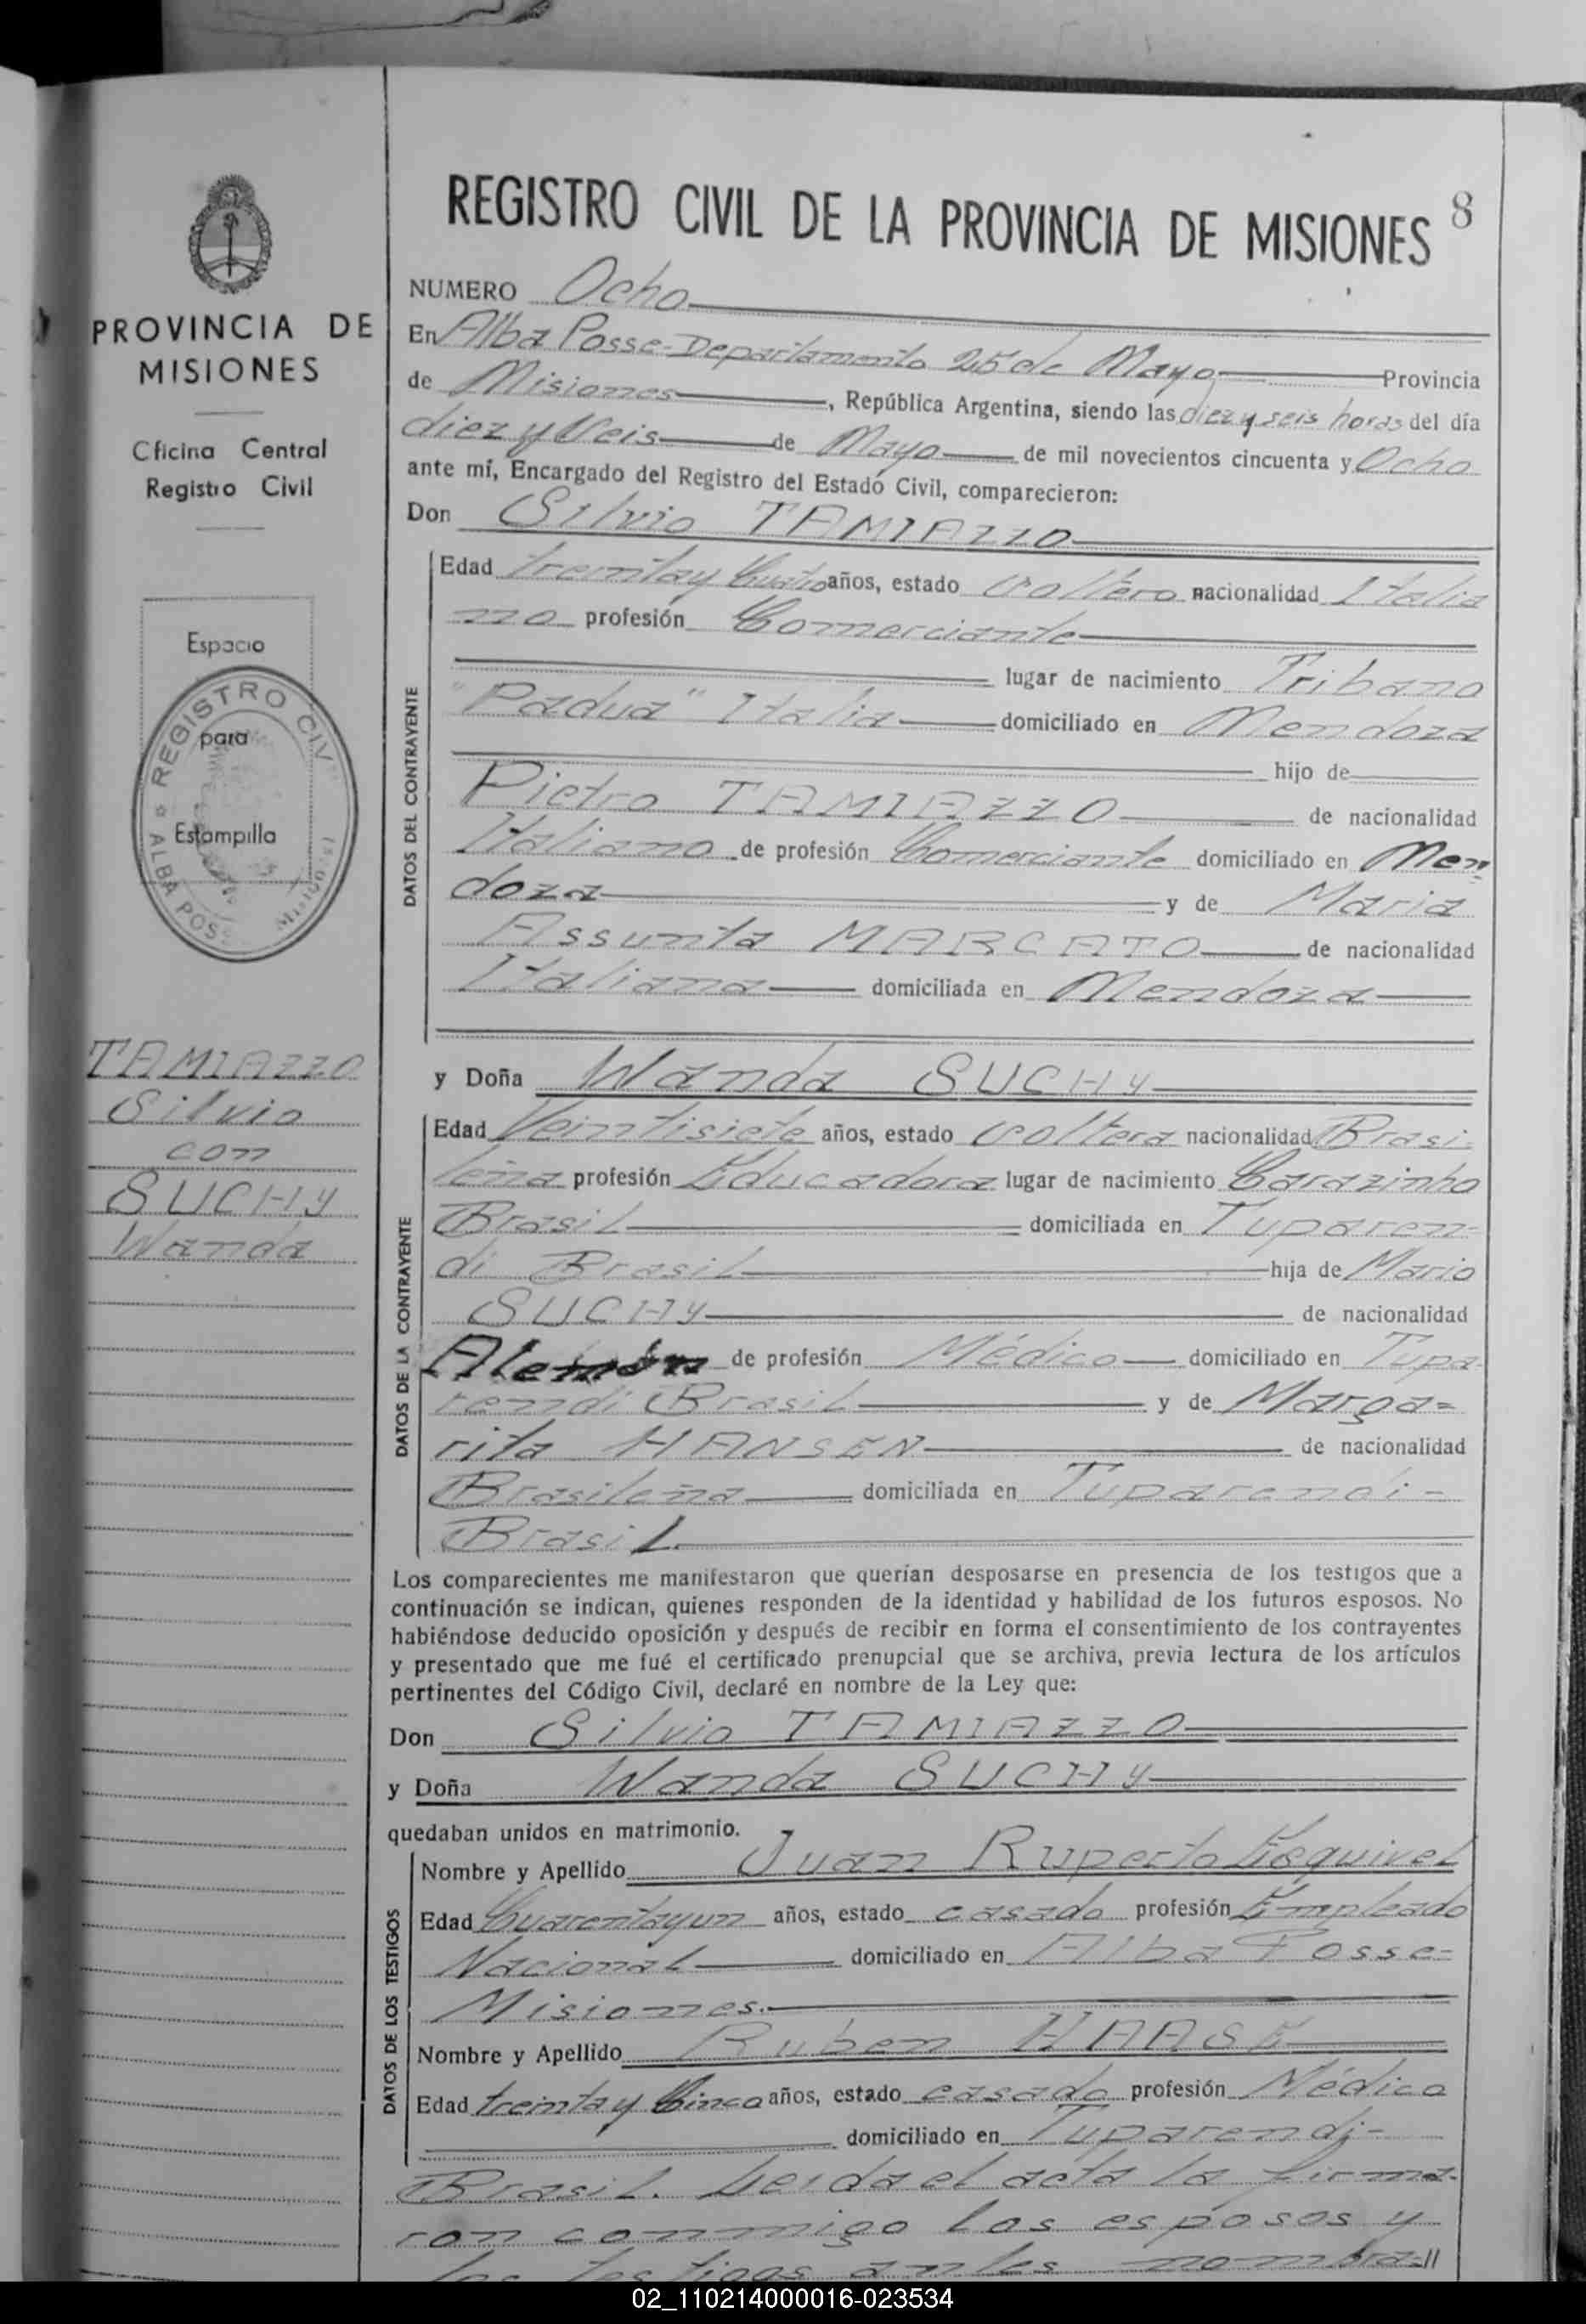 8
REGISTRO CIVIL DE LA PROVINCIA DE MISIONES
PROVINCIA DE
MISIONES
Oficina Central
Registro Civil
Espacio
para
Estampilla
REGISTRO CIV
ALBA POS
Misiones
TAMIAZZO
Silvio
con
SUCHY
Wanda
NUMERO Ocho
En Alba Posse-Departamento 25 de Mayo Provincia
de Misiones, República Argentina, siendo las diez y seis horas del día
diez y Seis de Mayo de mil novecientos cincuenta y Ocho
ante mí, Encargado del Registro del Estado Civil, comparecieron:
Don Silvio TAMIAZZO
DATOS DEL CONTRAYENTE
Edad treinta y Cuatro años, estado Soltero nacionalidad Italia
no profesión Comerciante
lugar de nacimiento Tribano
"Padua" Italia domiciliado en Mendoza
hijo de
Pietro TAMIAZZO de nacionalidad
Italiano de profesión Comerciante domiciliado en Men
doza y de Maria
Assunta MARCATO de nacionalidad
Italiana domiciliada en Mendoza
y Doña Wanda SUCHY
DATOS DE LA CONTRAYENTE
Edad Veintisiete años, estado Soltera nacionalidad Brasi-
leña profesión Educadora lugar de nacimiento Carazinho
Brasil domiciliada en Tuparen-
di Brasil hija de Mario
SUCHY de nacionalidad
Alemán de profesión Médico domiciliado en Tupa-
rendi Brasil y de Marga=
rita HANSEN de nacionalidad
Brasileña domiciliada en Tuparendi-
Brasil.
Los comparecientes me manifestaron que querían desposarse en presencia de los testigos que a
continuación se indican, quienes responden de la identidad y habilidad de los futuros esposos. No
habiéndose deducido oposición y después de recibir en forma el consentimiento de los contrayentes
y presentado que me fué el certificado prenupcial que se archiva, previa lectura de los artículos
pertinentes del Código Civil, declaré en nombre de la Ley que:
Don Silvio TAMIAZZO
y Doña Wanda SUCHY
quedaban unidos en matrimonio.
DATOS DE LOS TESTIGOS
Nombre y Apellido Juan Ruperto Esquivel
Edad Cuarentayun años, estado casado profesión Empleado
Nacional domiciliado en Alba Posse-
Misiones.
Nombre y Apellido Ruben HAASE
Edad treinta y Cinco años, estado casado profesión Médico
domiciliado en Tuparendi-
Brasil. Leida el acta la firma-
ron conmigo los esposos y
los testigos antes nombra-//
02_110214000016-023534